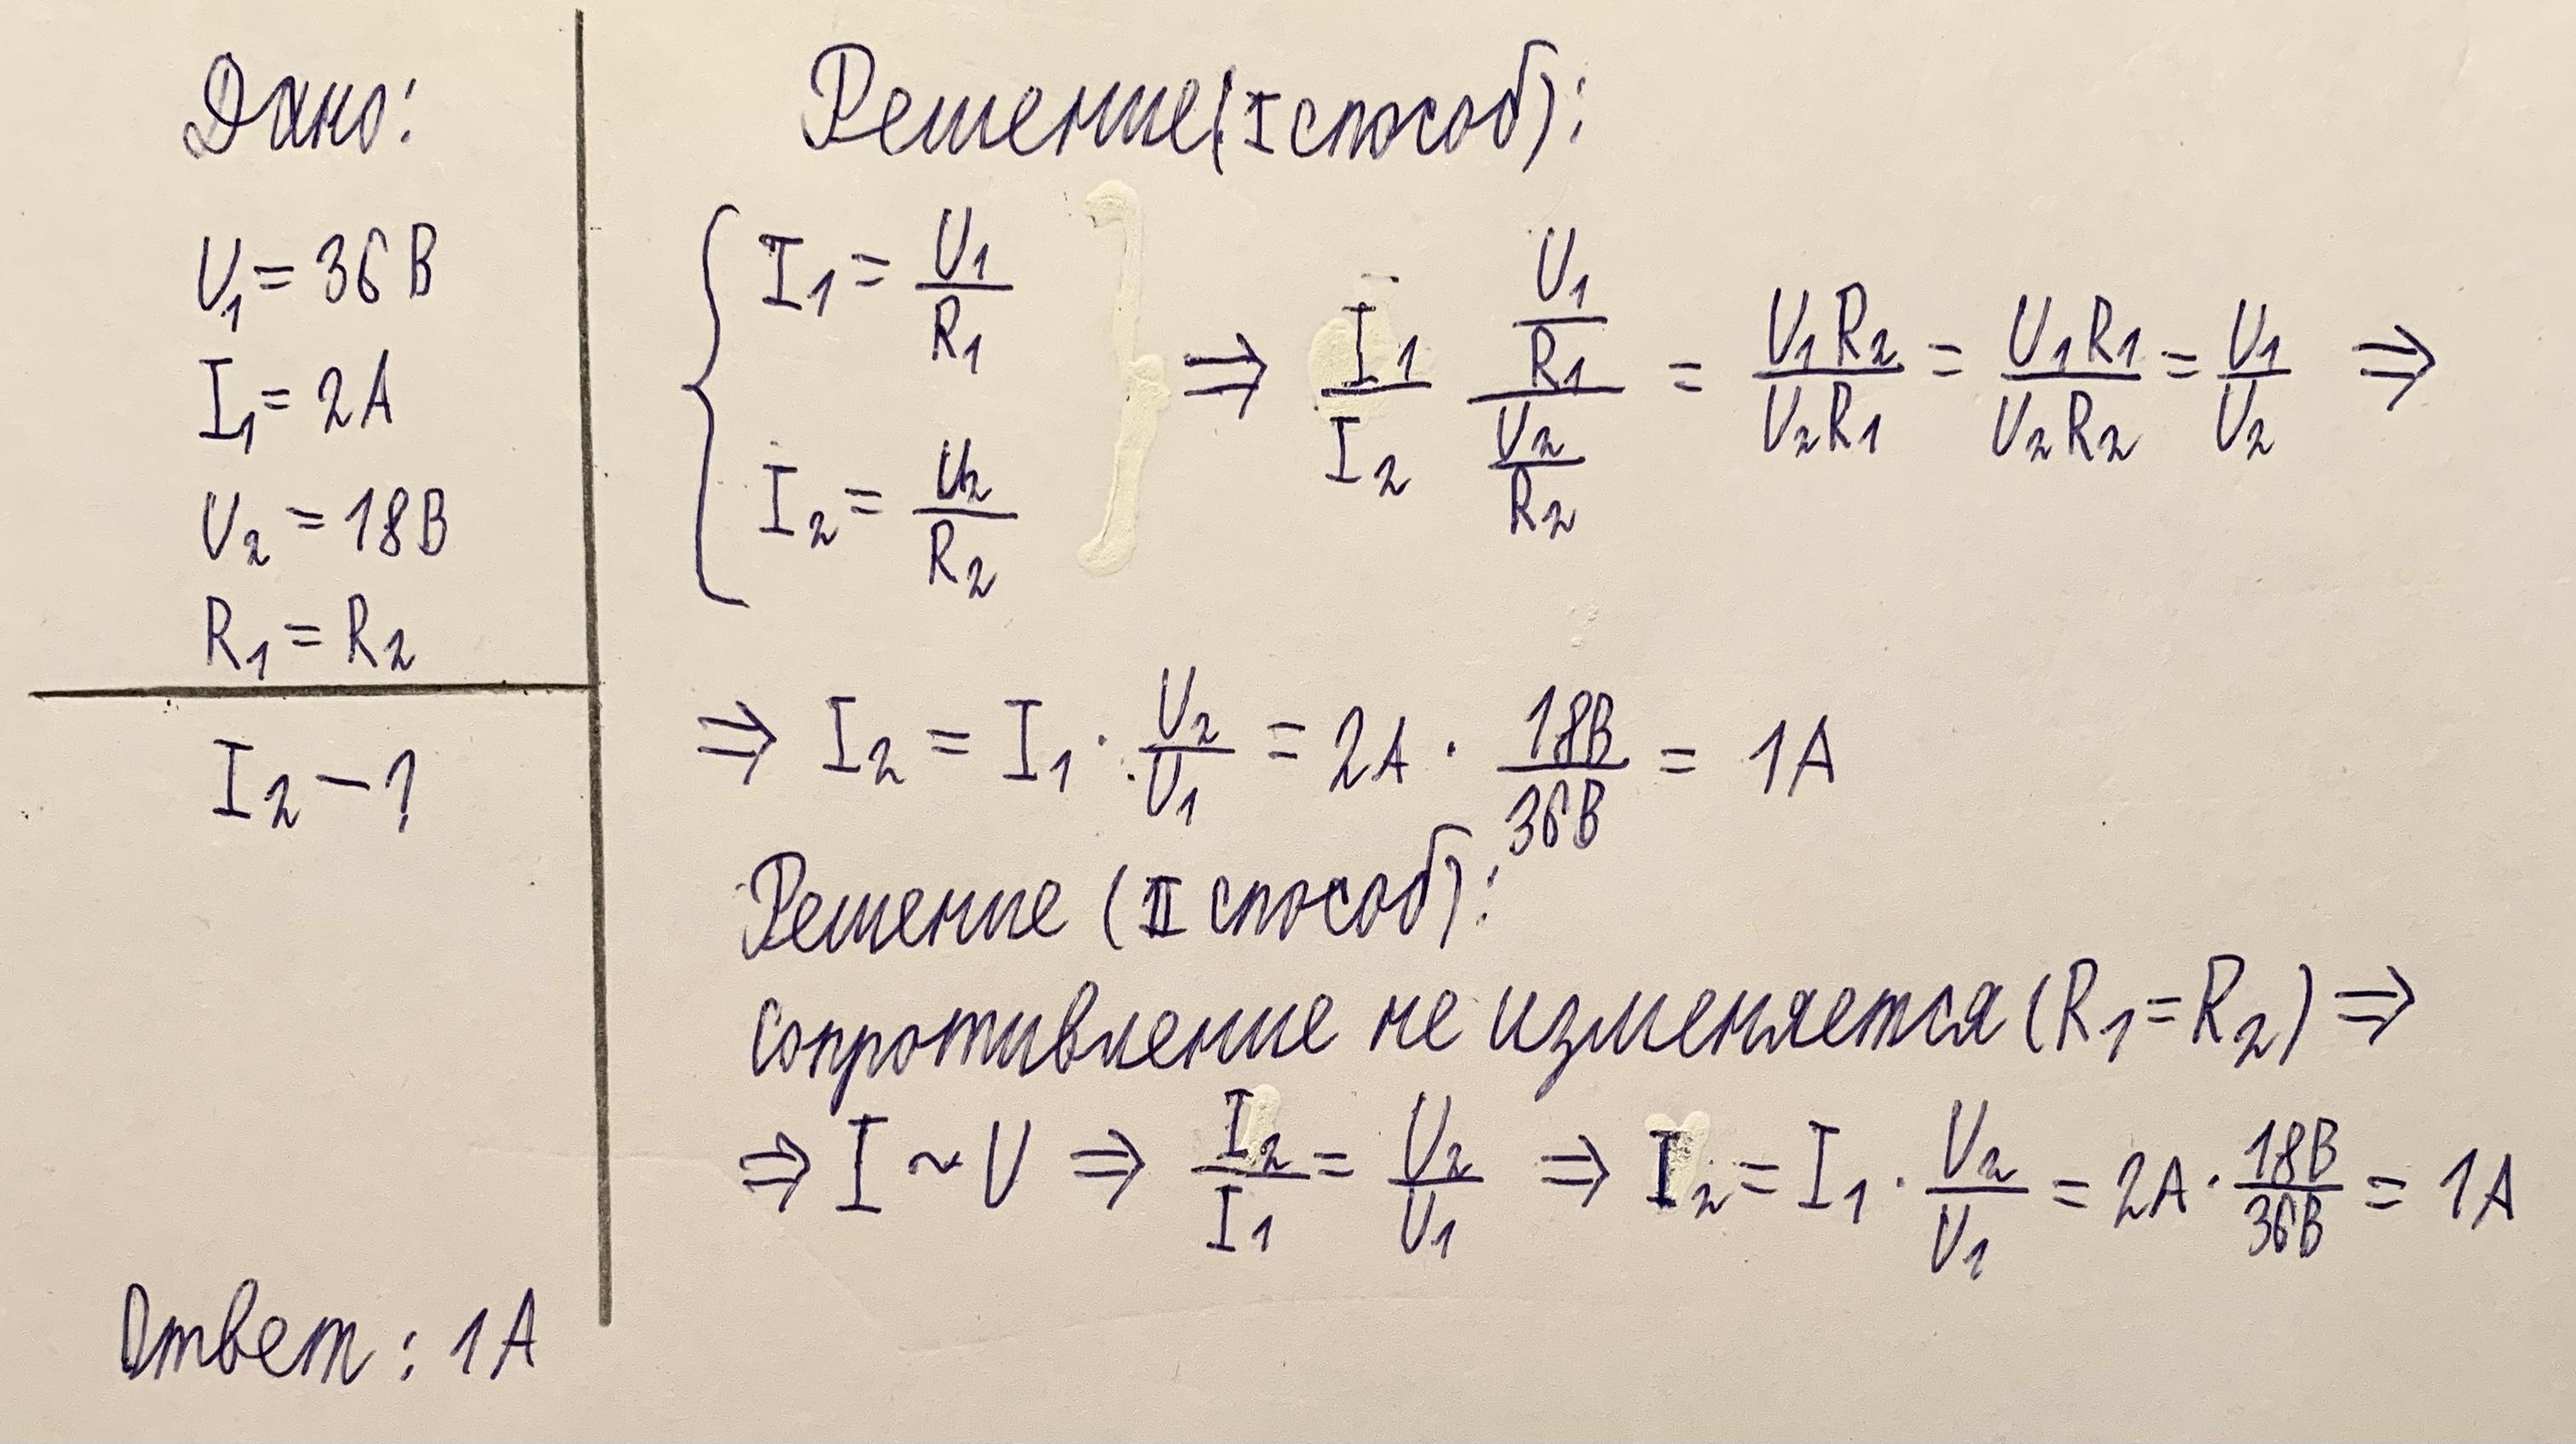 Дано:
U₁ = 36 В
I₁ = 2 А
U₂ = 18 В
R₁ = R₂
I₂ – ?
Решение (I способ):
{ I₁ = U₁/R₁
I₂ = U₂/R₂
⇒ I₁/I₂ (U₁/R₁)/(U₂/R₂) = U₁R₂/U₂R₁ = U₁R₁/U₂R₂ = U₁/U₂ ⇒
⇒ I₂ = I₁ · U₂/U₁ = 2А · 18В/36В = 1А
Решение (II способ):
сопротивление не изменяется (R₁ = R₂) ⇒
⇒ I ~ U ⇒ I₂/I₁ = U₂/U₁ ⇒ I₂ = I₁ · U₂/U₁ = 2А · 18В/36В = 1А
Ответ: 1А